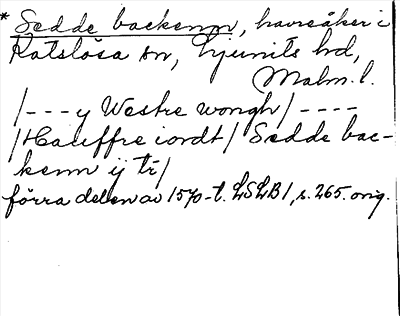 * Sædde backenn, havreåker i
Katslösa sn, Ljunits hd,
Malm. l.
/---y Westre wongh/----
/Hauffre iordt/ Sædde bac-
kenn ij tr/
förra delen av 1570-t. LSLB1, s. 265. orig.